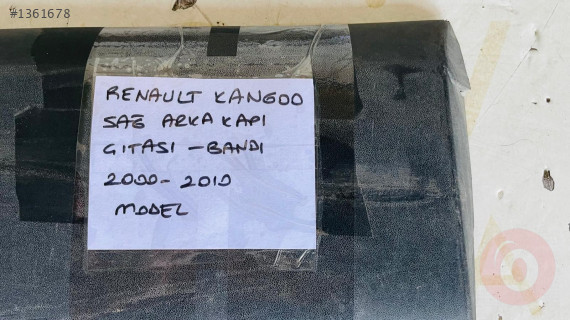 #1361678
RENAULT KANGOO
SAĞ ARKA KAPI
GITASI - BANDI
2000 - 2010
MODEL